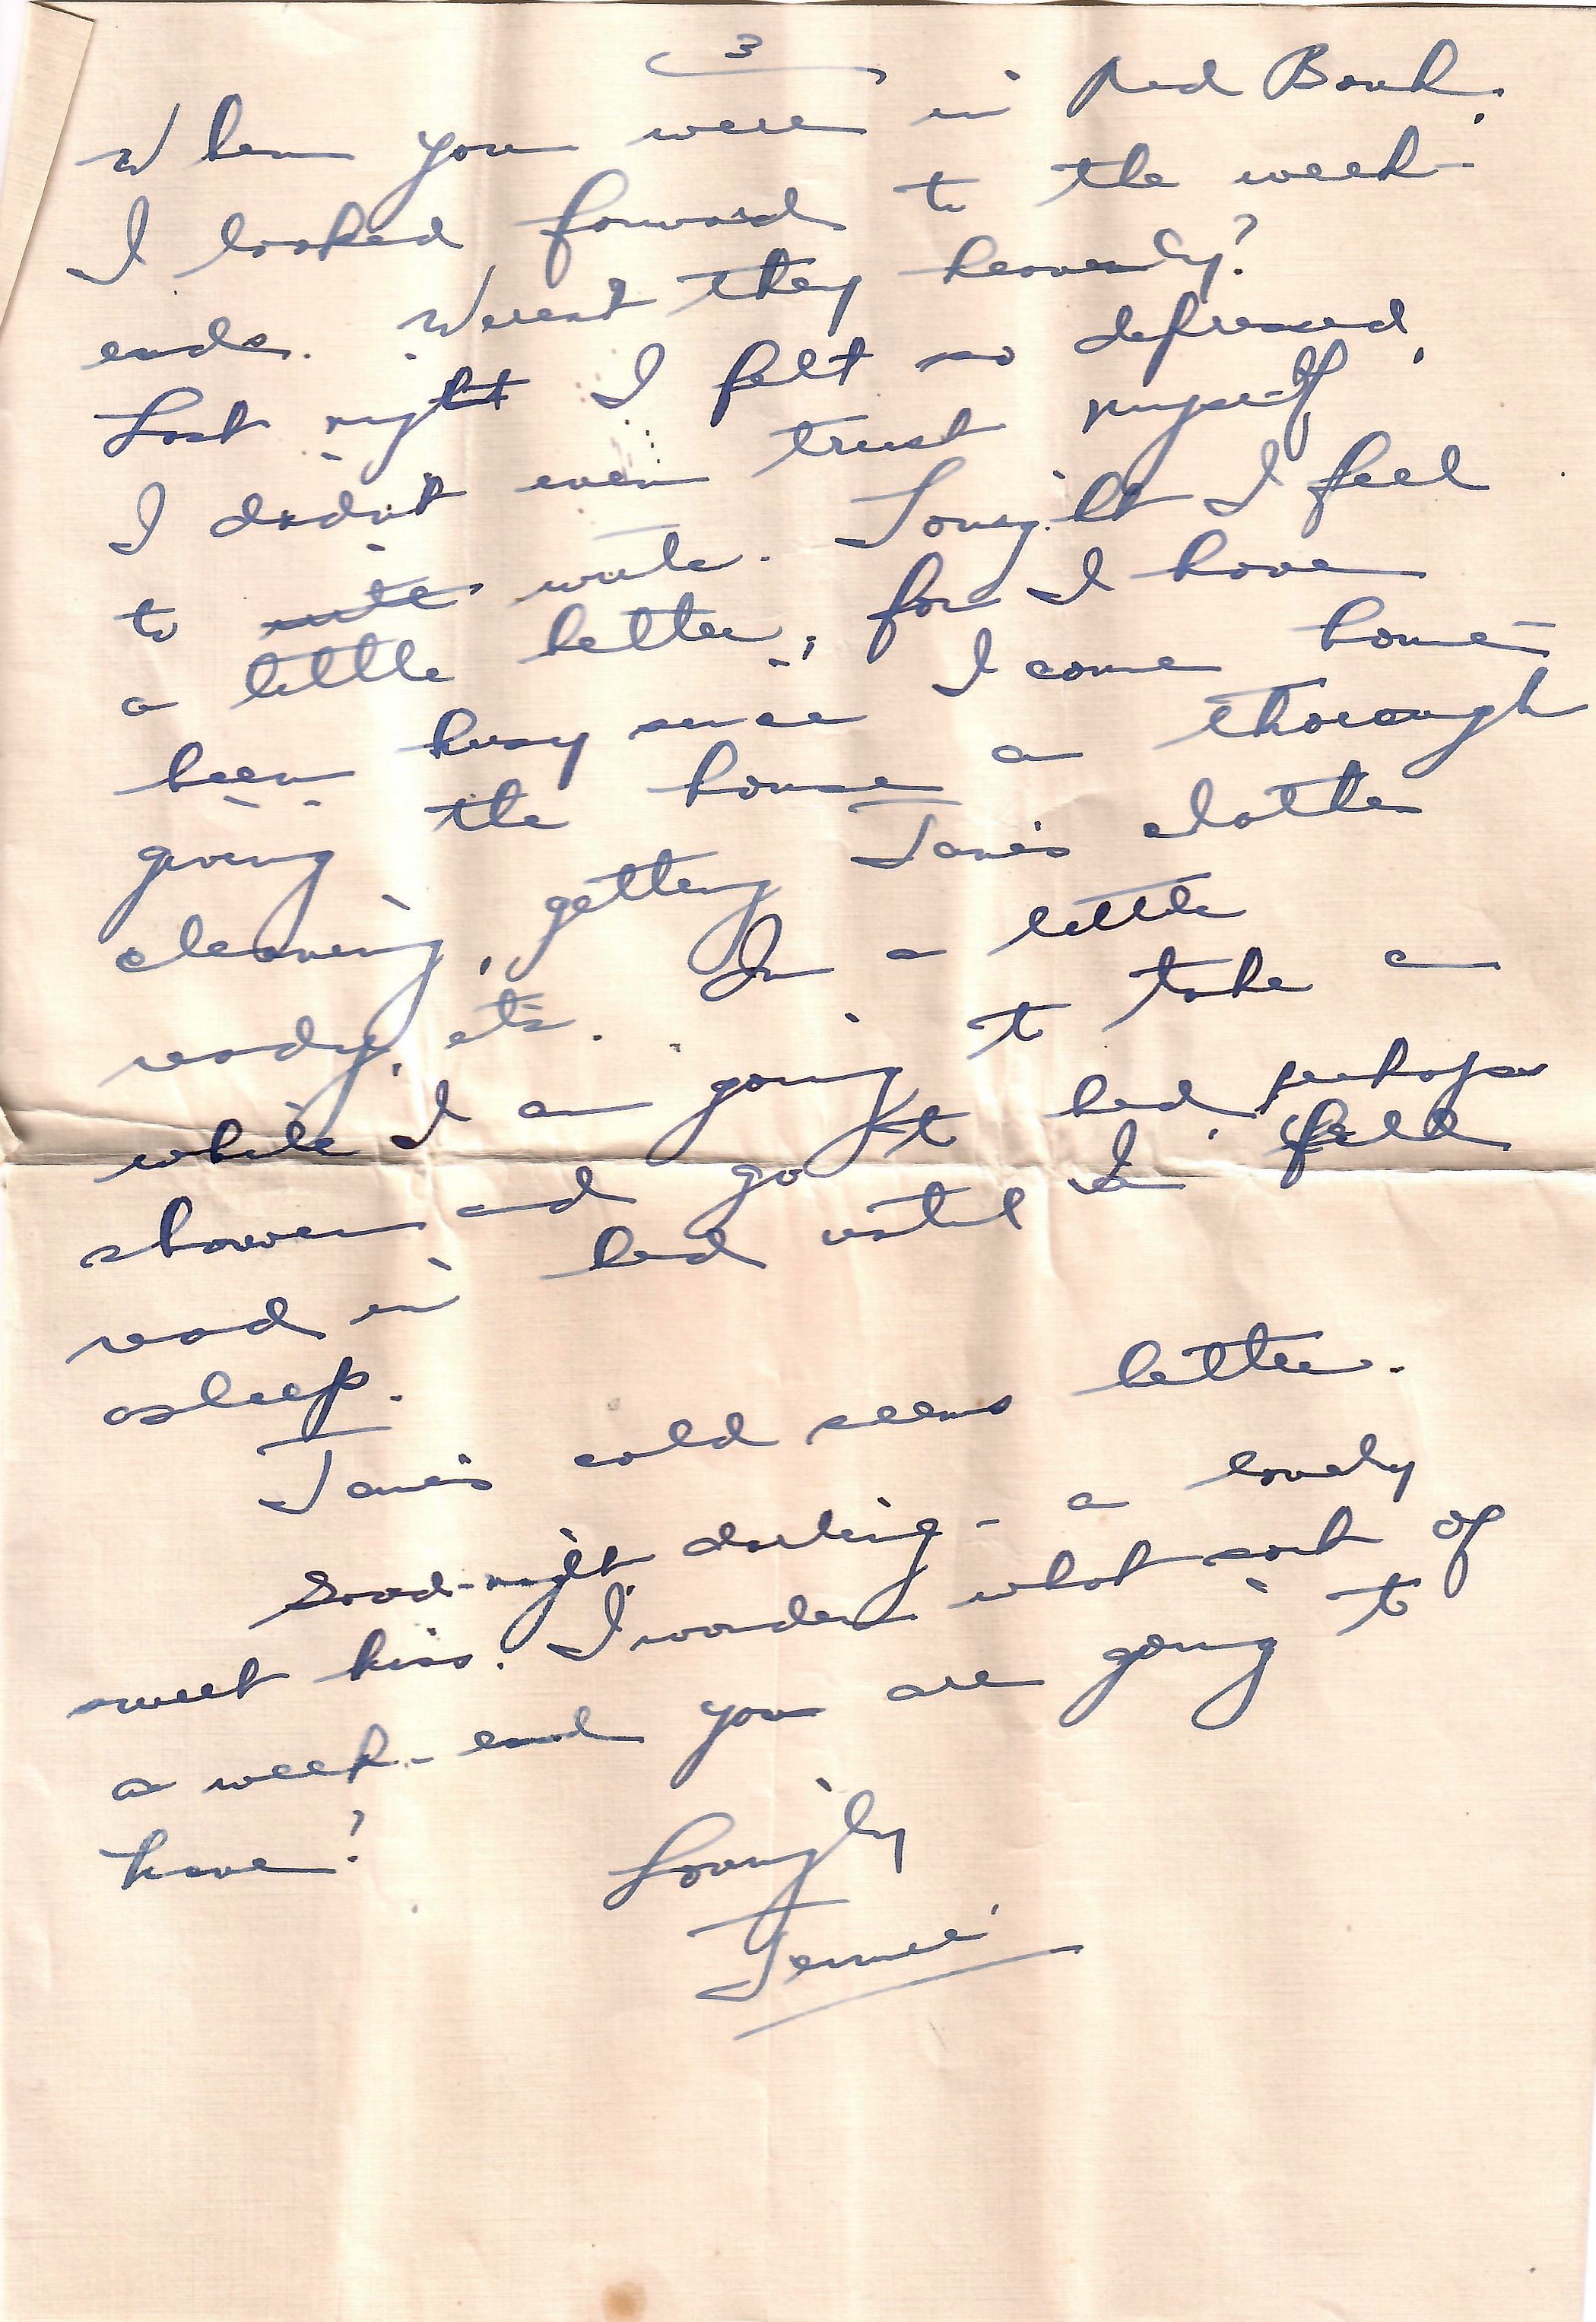 3
When you were in Red Bank,
I looked forward to the week-
ends. Weren't they heavenly?
Last night I felt so depressed,
I didn't even trust myself
to write. Tonight I feel
a little better, for I have
been busy since I come home –
giving the house a thorough
cleaning, getting Jane's clothes
ready, etc. In a little
while I am going to take a
shower and go to bed, perhaps
read in bed until I fall
asleep.
Jane's cold seems better.
Good-night darling – a lovely
sweet kiss. I wonder what sort of
a week-end you are going to
have?
Lovingly
Jennie